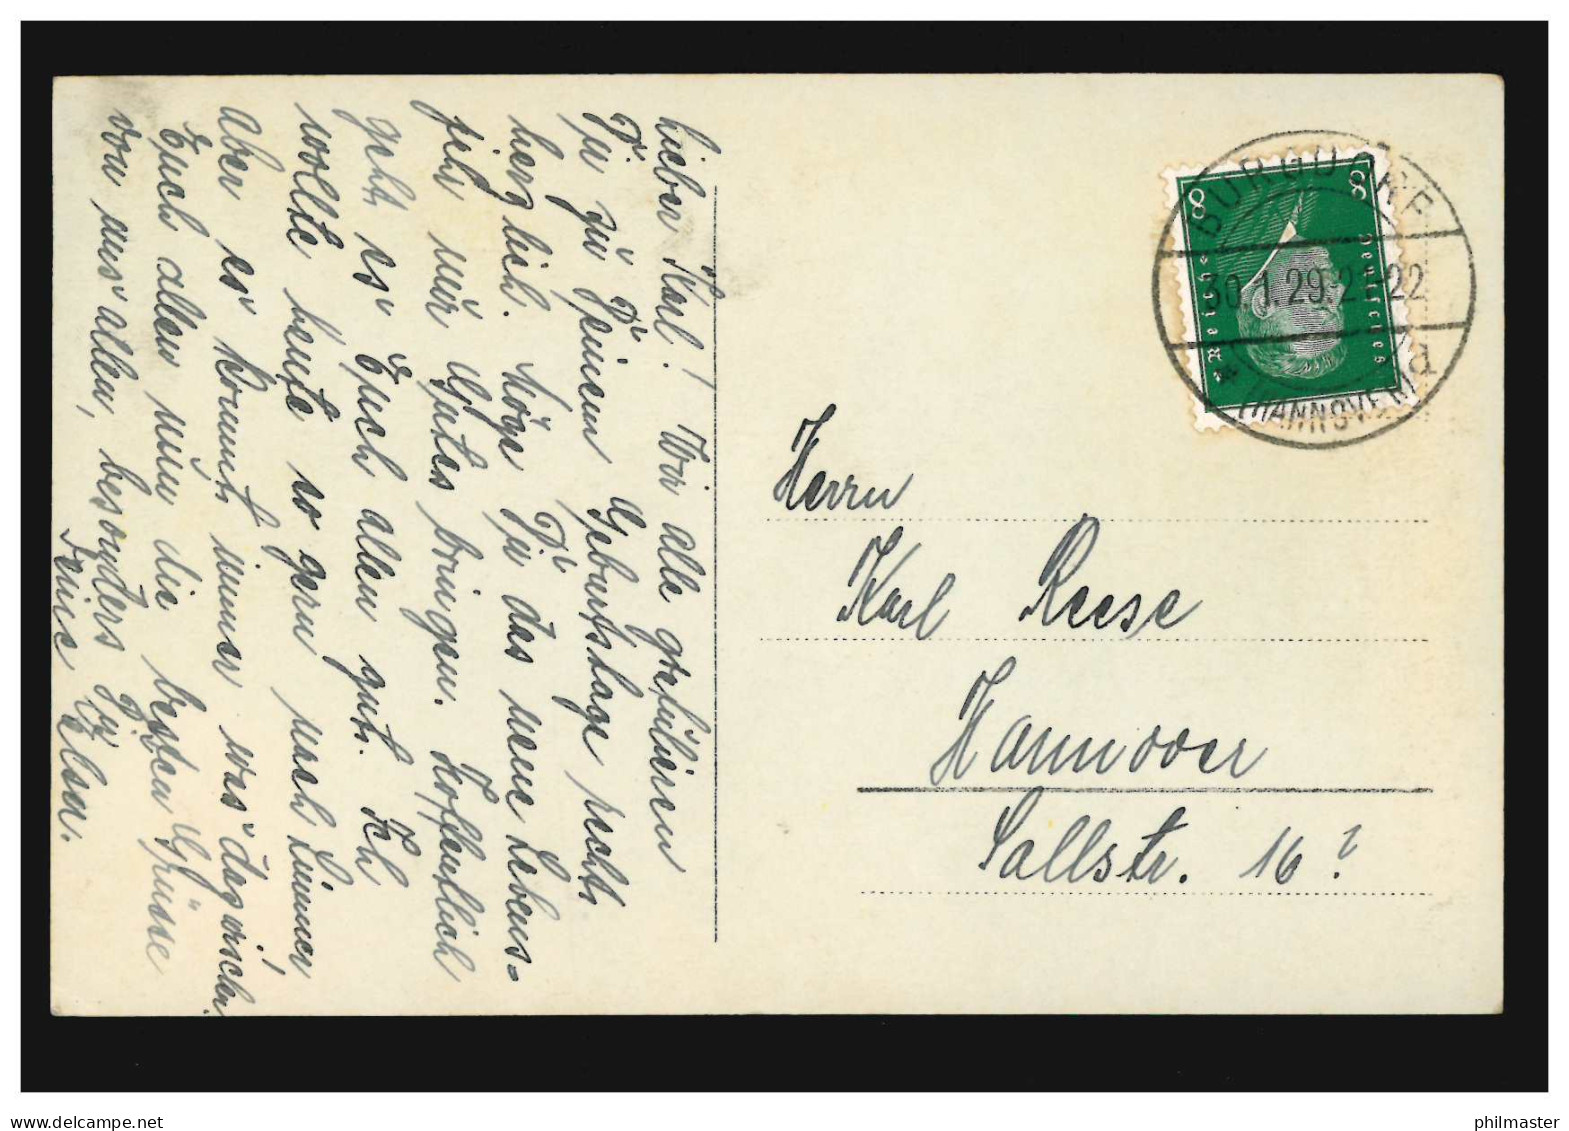 Lieber Karl! Wir alle gratulieren
Dir zu Deinem Geburtstage recht
herzlich. Möge Dir das neue Lebens-
jahr nur Gutes bringen. Hoffentlich
geht es Euch allen gut. Ich
wollte heute so gern nach Limmer,
aber es kommt immer was dazwischen.
Euch allen nun die besten Grüsse
von uns allen, besonders
Elsen.
BURGDORF
30.1.29. 21-22
(HANNOVER)
8 8
Deutsches
Reich
Herrn
Karl Reese
Hannover
Sallstr. 16?
delcampe.net
philmaster